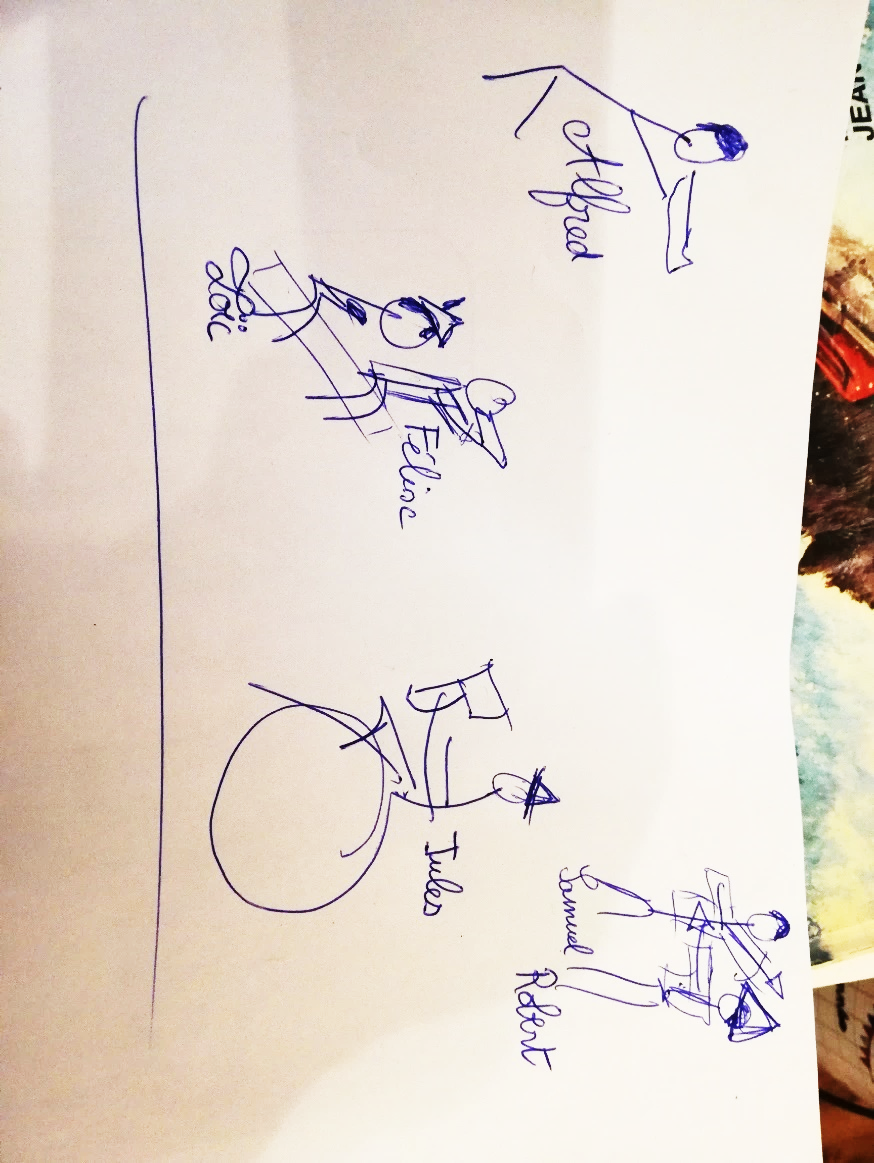 JEAN
Alfred
Loïc
Féline
Jules
Samuel
Robert